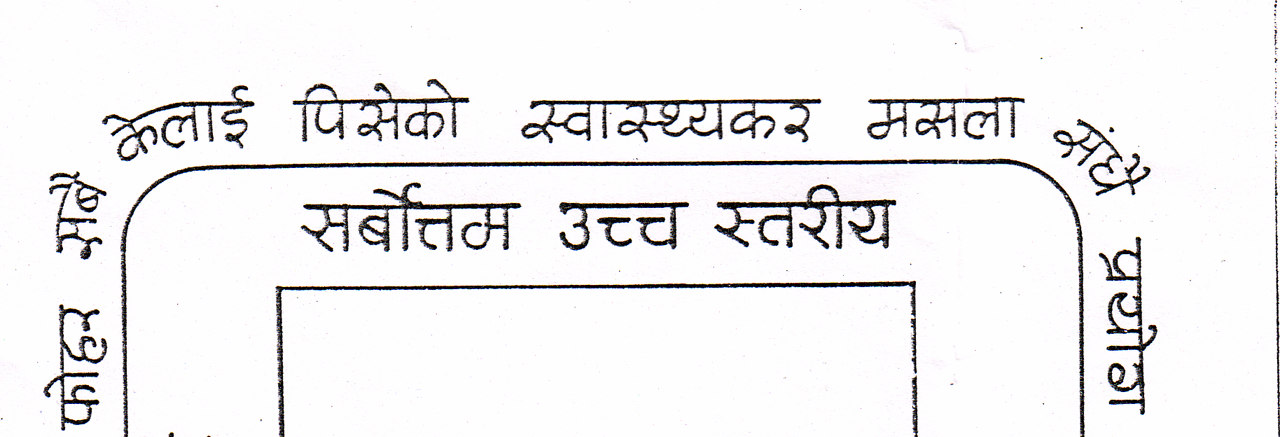 फोहर सबै केलाई पिसेको स्वास्थ्यकर मसला सेंधै प्रयोग
सर्बोत्तम उच्च स्तरीय